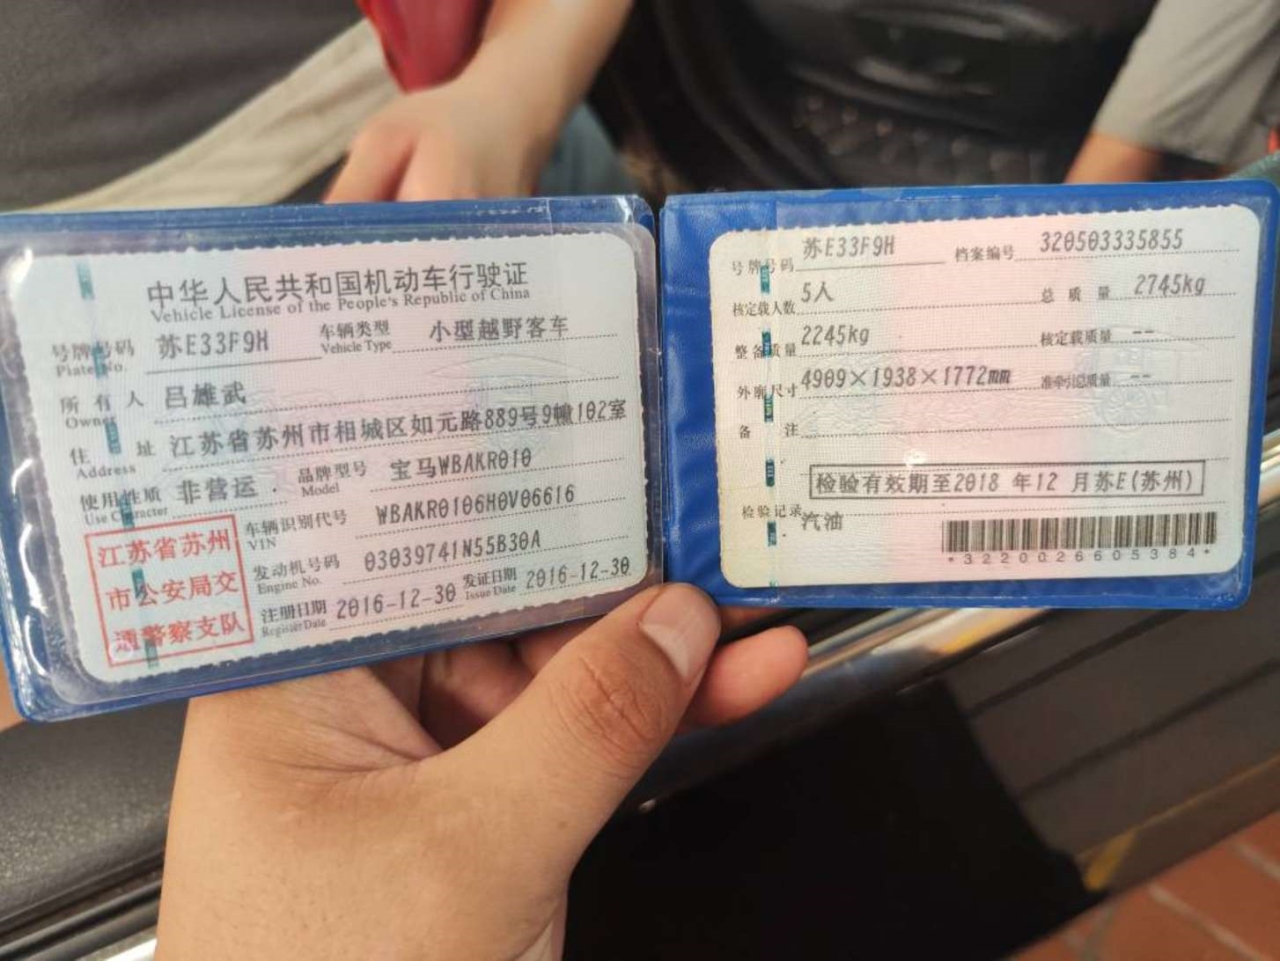 中华人民共和国机动车行驶证
Vehicle License of the People's Republic of China
号牌号码 苏E33F9H 车辆类型 小型越野客车
Plate No. Vehicle Type
所有人 吕雄武
Owner
住址 江苏省苏州市相城区如元路889号9幢102室
Address
使用性质 非营运 品牌型号 宝马WBAKR010
Use Character Model
江苏省苏州
市公安局交
通警察支队
车辆识别代号 WBAKR0106H0V06616
VIN
发动机号码 03039741N55B30A
Engine No.
注册日期 2016-12-30 发证日期 2016-12-30
Register Date Issue Date
号牌号码 苏E33F9H 档案编号 320503335855
核定载人数 5人 总质量 2745kg
整备质量 2245kg 核定载质量 --
外廓尺寸 4909×1938×1772mm 准牵引总质量 --
备注
检验有效期至2018年12月苏E(苏州)
检验记录
汽油
*3220026605384*